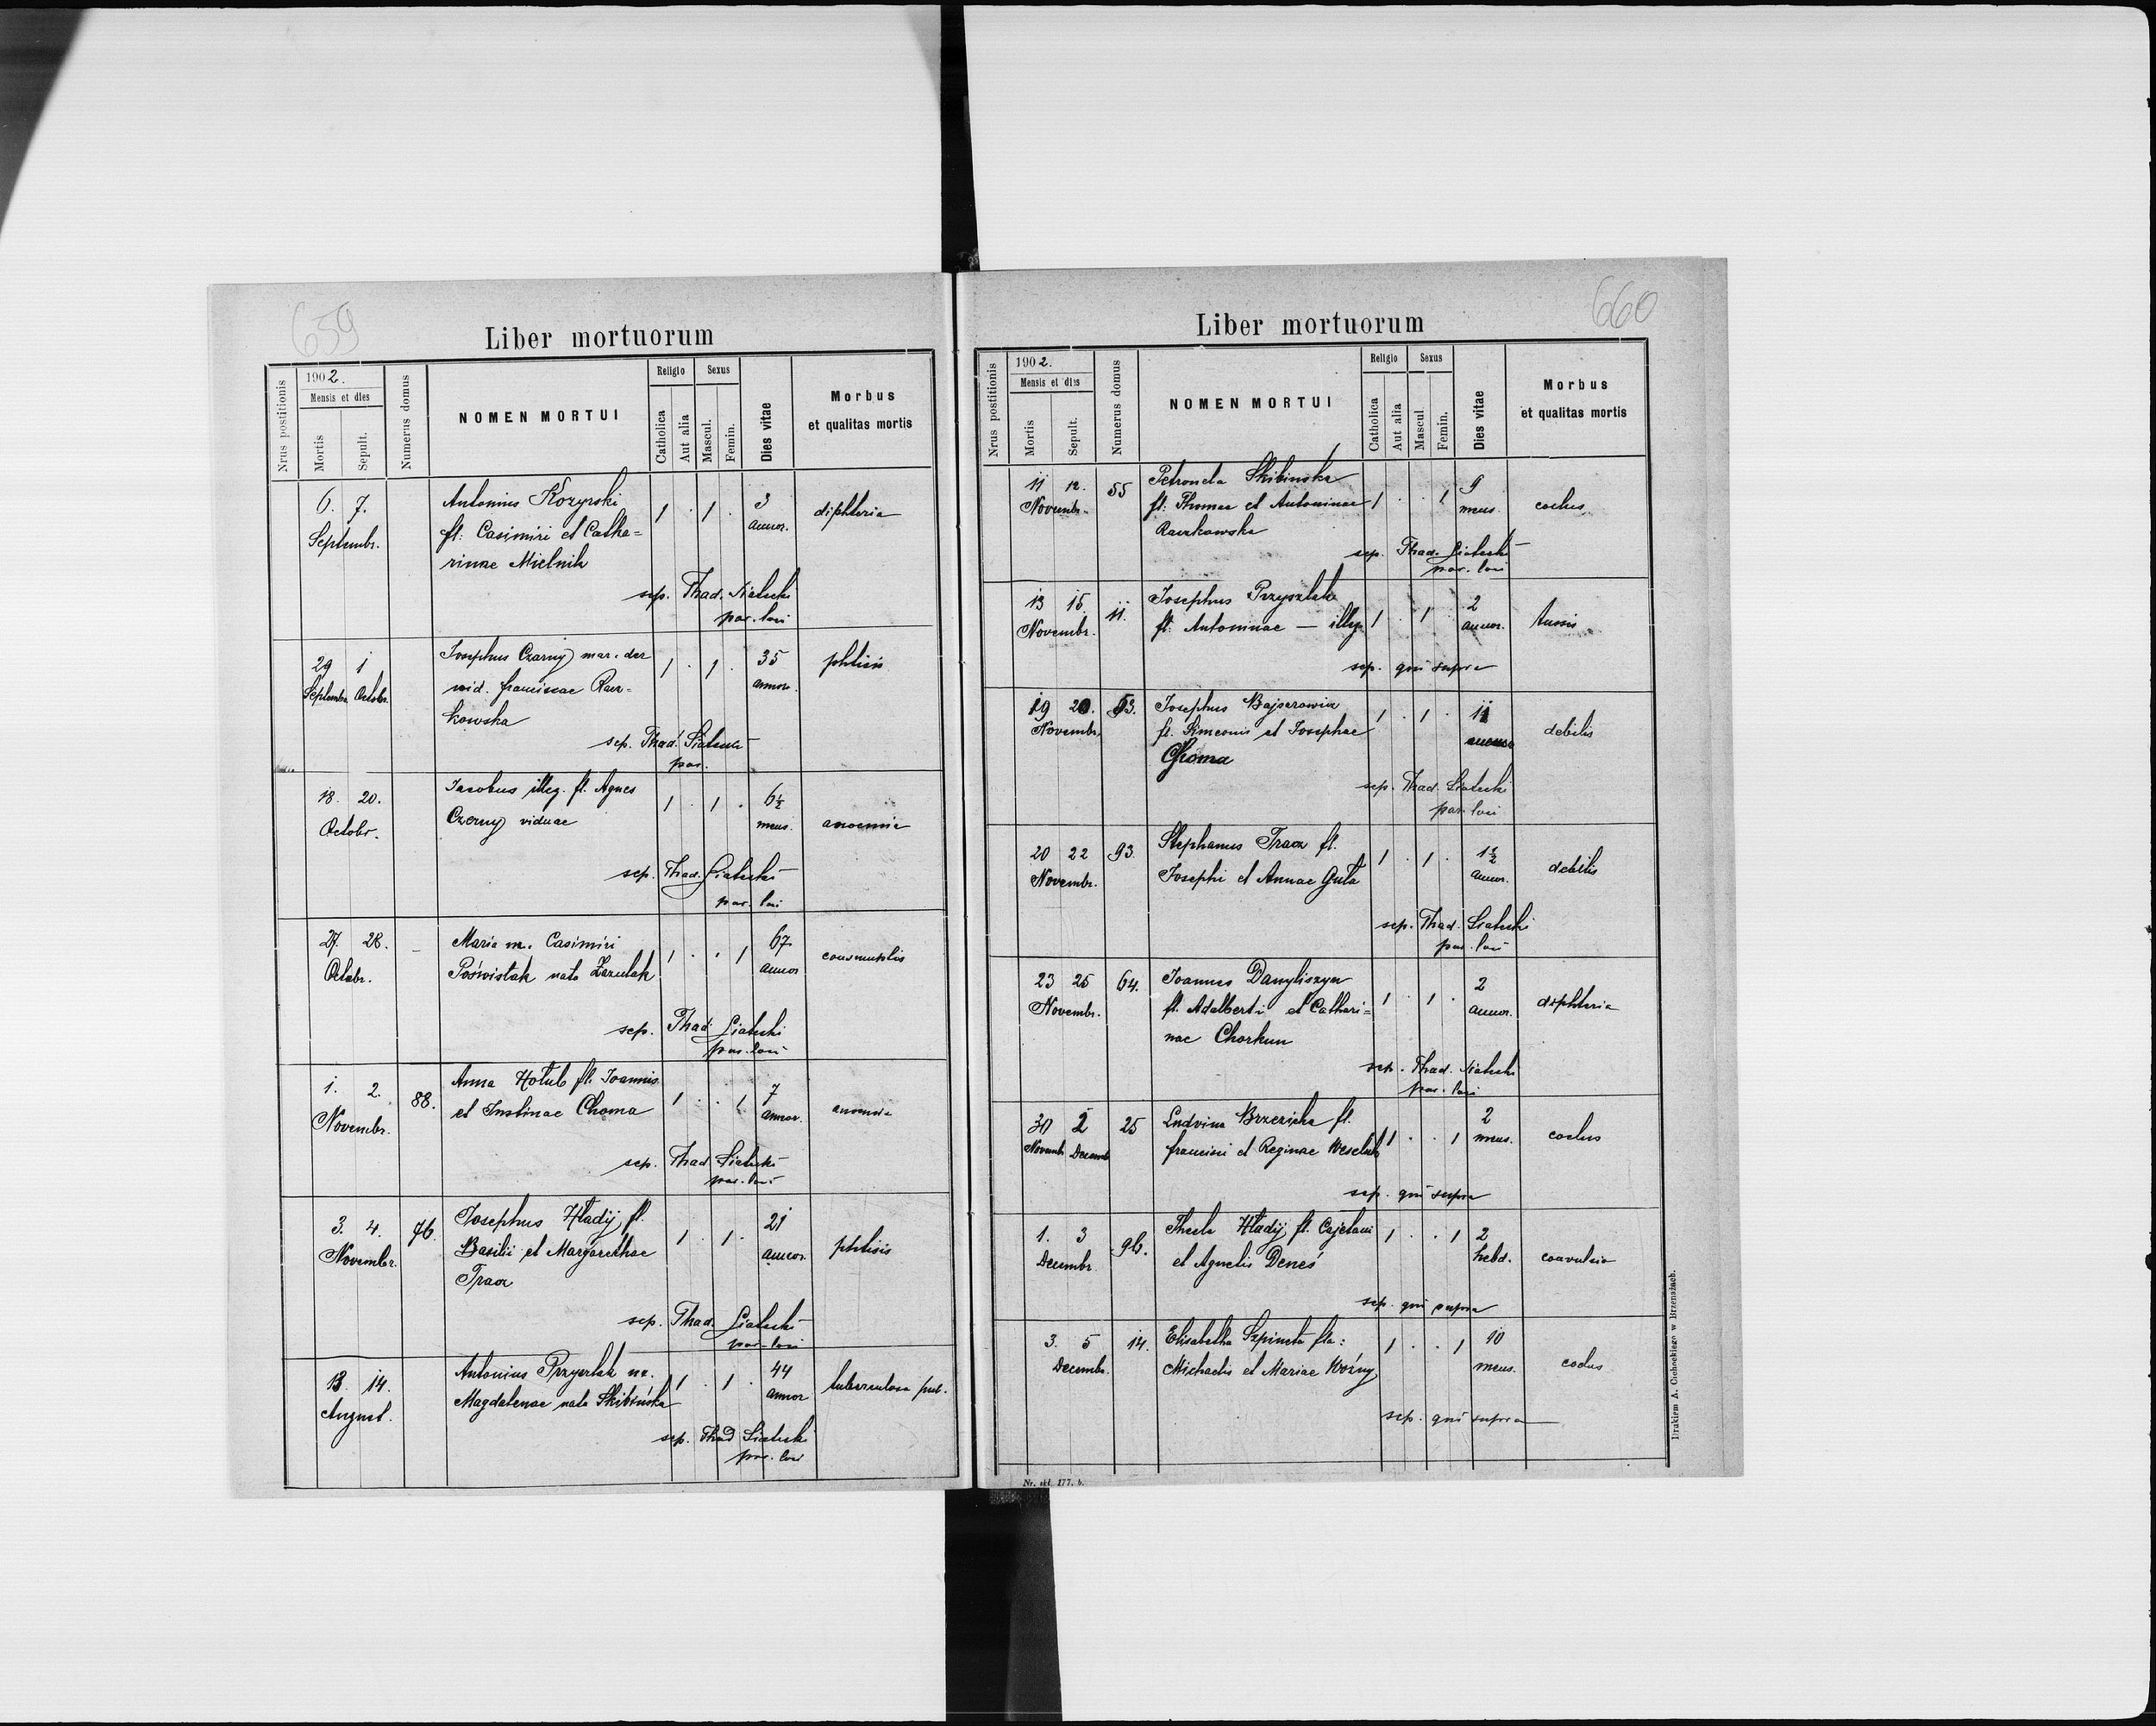 659
Liber mortuorum
Nrus postitionis
1902.
Mensis et dies
Mortis
Sepult.
Numerus domus
NOMEN MORTUI
Religio
Catholica
Aut alia
Sexus
Mascul.
Femin.
Dies vitae
Morbus
et qualitas mortis
6. 7. Antonius Kozyrski 1 . 1 . 3 diphteria
Septembr. fl: Casimiri et Catha= annor.
rinae Mielnik
sep. Thad. Siatecki
par. loci
29 1 Josephus Czarny mar. der 1 . 1 . 35 phtisis
Septembr Octobr. vid. Franciscae Racz-
annor.
kowska
sep. Thad. Siatecki
par.
18. 20. Jacobus illeg. fl. Agnes 1 . 1 . 6½
Octobr. Czerny viduae mens. anoemia
sep. Thad. Siatecki
par. loci
27. 28. - Maria m. Casimiri 1 . . 1 67.
Octobr. Poświstak nata Zazulak annor
sep. Thad. Siatecki
par. loci
1. 2. 88. Anna Hołub fl. Joannis 1 . . 1 7
Novembr. et Justinae Choma annor.
sep. Thad. Siatecki
par. loci
3. 4. 76. Josephus Hładij fl. 1 . 1 . 21
Novembr. Basilii et Margarethae annor. phtisis
Tracz
sep. Thad. Siatecki
par. loci
13. 14. Antonius Przyszlak m. 1 . 1 . 44
August. Magdalenae nata Skibińska annor tuberculosa pul.
sep. Thad Siatecki
par. loci
660
Liber mortuorum
Nrus postitionis
1902.
Mensis et dies
Mortis
Sepult.
Numerus domus
NOMEN MORTUI
Religio
Catholica
Aut alia
Sexus
Mascul.
Femin.
Dies vitae
Morbus
et qualitas mortis
11 12. 55 Petronela Skibinska 1 . . 1 9
Novembr. fl: Thomae et Antoninae mens.
Raczkowska
sep. Thad. Siatecki
par. loci
13 15. 11. Josephus Przyszlak 1 . 1 . 2 tussis
Novembr. fl. Antoninae — illeg. annor.
sep. qui supra
19 20. 53. Josephus Bajserowicz 1 . 1 . debilis
Novembr. fl. Simeonis et Josephae
Choma
sep. Thad. Siatecki
par. loci
20 22 93. Stephanus Tracz fl. 1 . 1 . 1½ debilis
Novembr. Josephi et Annae Guła annor.
sep. Thad. Siatecki
par. loci
23 25 64. Joannes Danyliszyn 1 . 1 . 2
Novembr. fl. Adalberti et Cathari= annor. diphteria
nae Chorkun
sep. Thad. Siatecki
par. loci
30 2 25 Ludvina Brzezicka fl. 1 . . 1 2
Novembr Decemb Francisci et Reginae mens.
sep. qui supra
1. 3 96. Thecla Hładij fl. Cajetani 1 . . 1 2
Decembr et Agnetis Deneś hebd. convulsio
sep. qui supra
3. 5 14. Elisabetha fla: 1 . . 1 10
Decembr. Michaelis et Mariae Woźny mens.
sep. qui supra
Nr. skł. 177. b.
Drukiem A. Cichockiego w Brzeżanach.